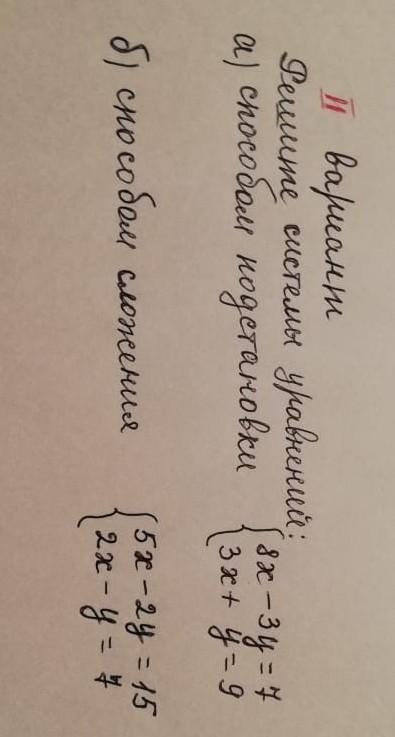 II вариант
Решите системы уравнений:
а) способом подстановки { 8x - 3y = 7
3x + y = 9
б) способом сложения { 5x - 2y = 15
2x - y = 7